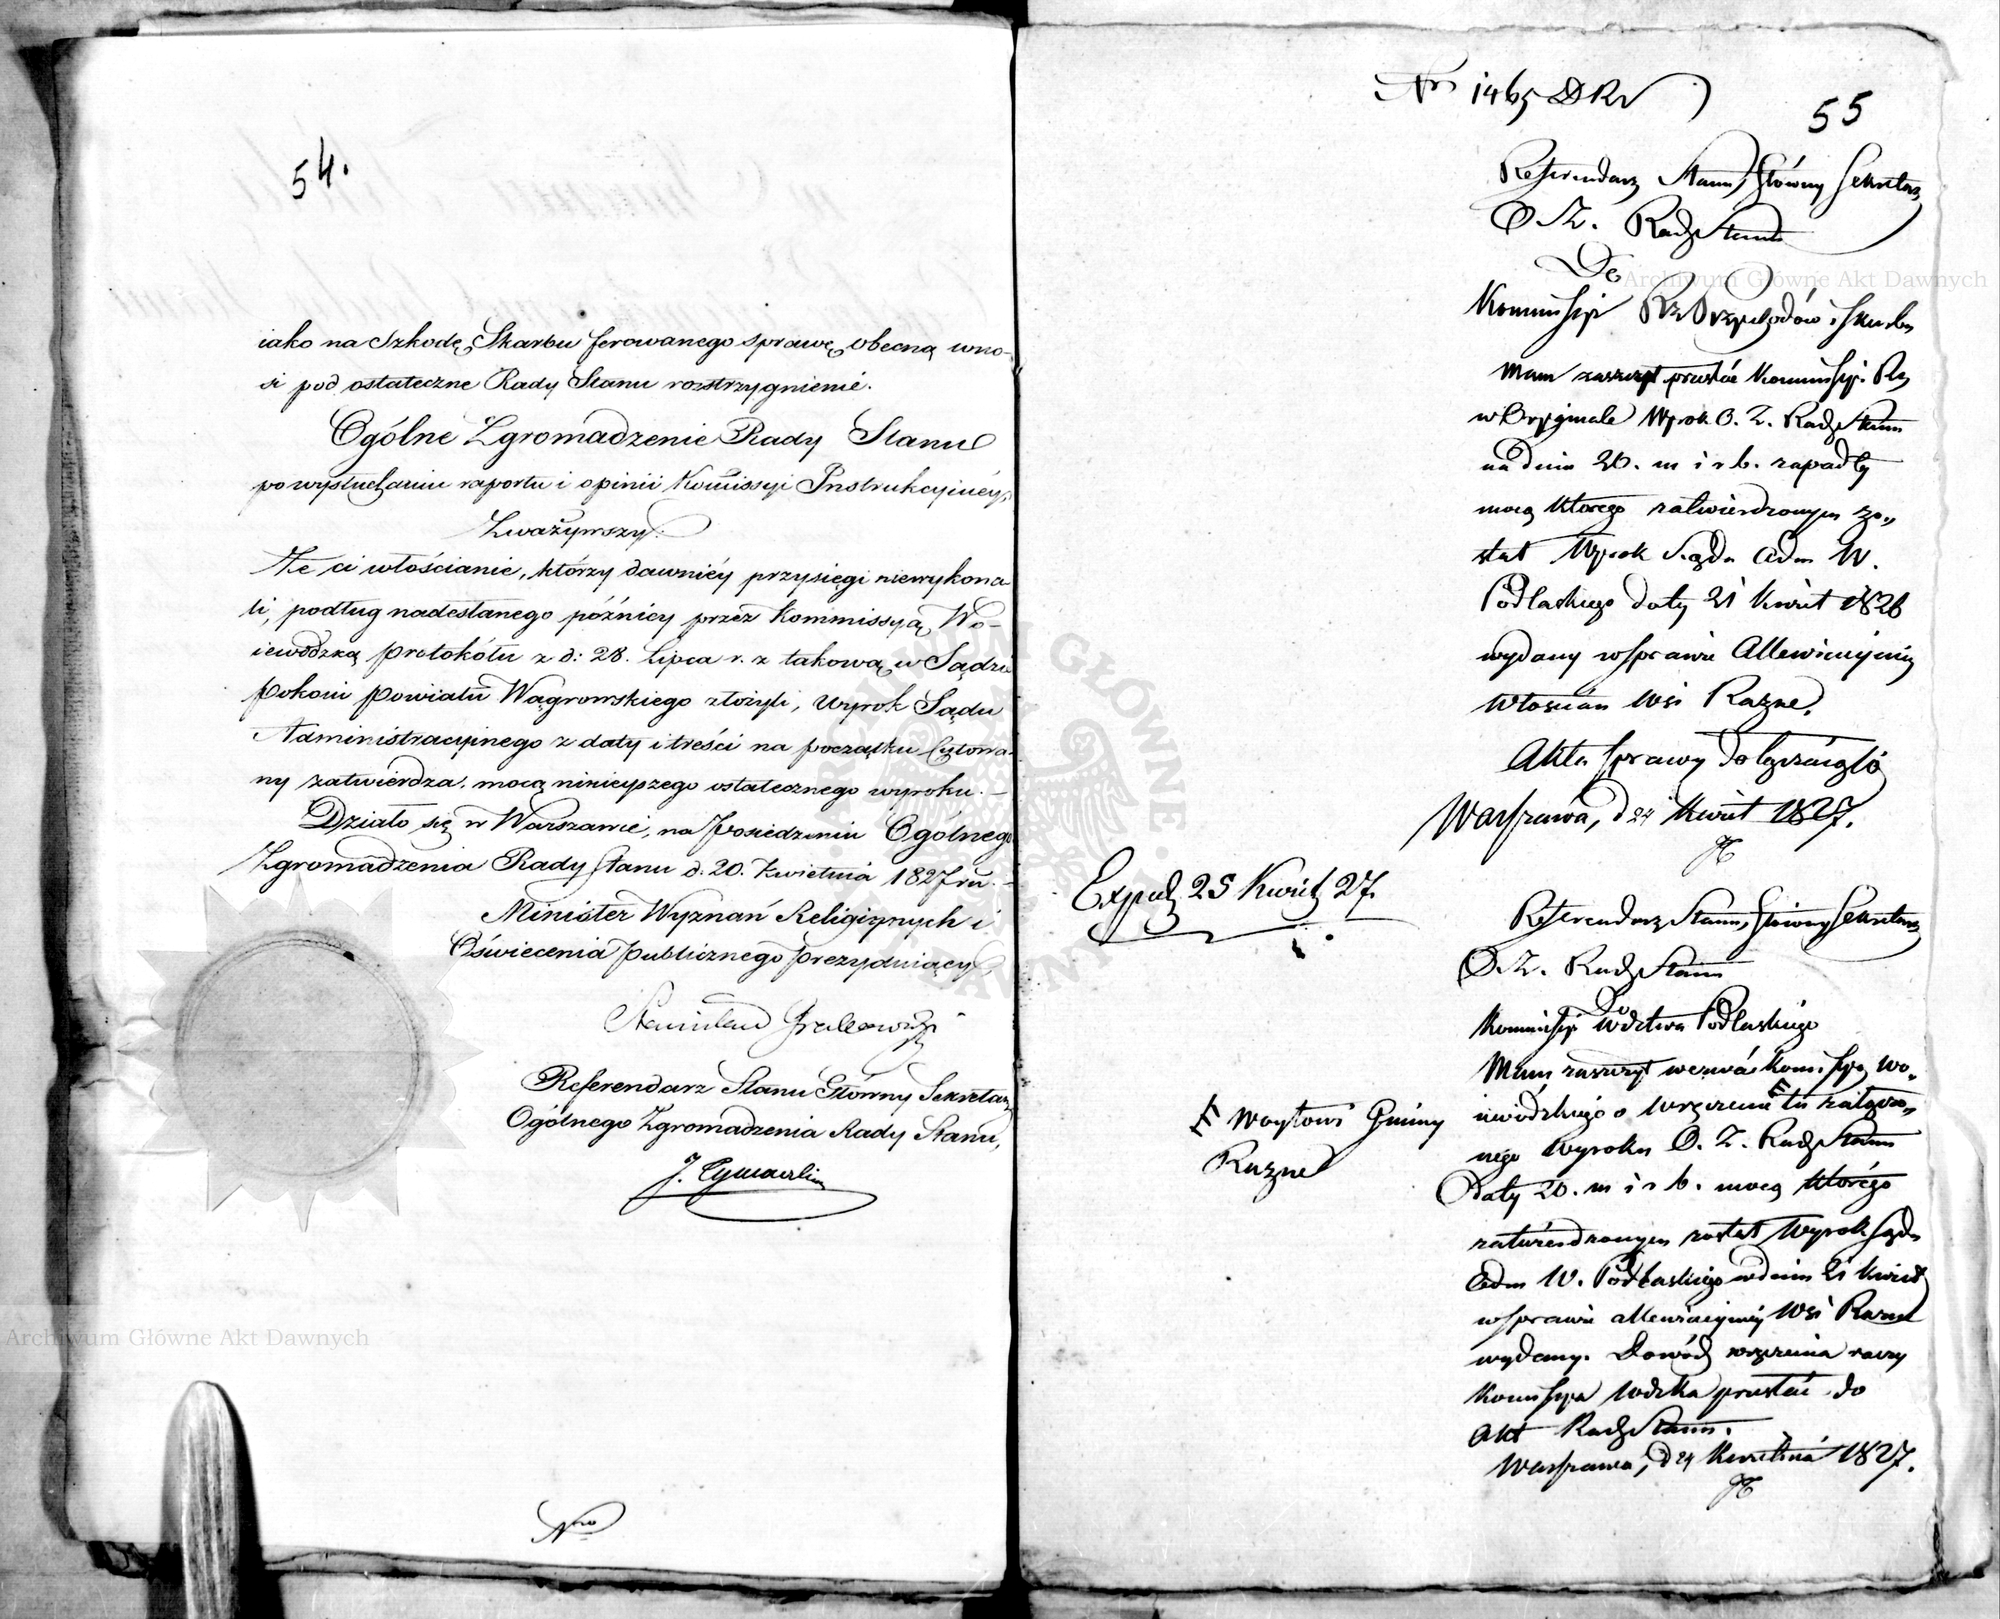 54.
iako na Szkodę Skarbu ferowanego sprawę obecną wno-
si pod ostateczne Rady Stanu rozstrzygnienie.
Ogólne Zgromadzenie Rady Stanu
po wysłuchaniu raportu i opinii Kommissyi Instrukcyinéy,
Zważywszy:
Że ci włościanie, którzy dawniéy przysięgi niewykona
li, podług nadesłanego późniey przez Kommissyą Wo-
iewódzką protokółu z d: 28. lipca r. z takową w Sądzie
pokoiu Powiatu Wągrowskiego złożyli, wyrok Sądu
Administracyinego z daty i treści na początku Cytowa-
ny zatwierdza, mocą ninieyszego ostatecznego wyroku.—
Działo się w Warszawie, na Posiedzeniu Ogólnego
Zgromadzenia Rady Stanu d. 20. Kwietnia 1827 ru.—
Minister Wyznań Religiynych i
Oświecenia Publicznego Prezyduiący,
Stanisław Grabowski
Referendarz Stanu Główny Sekretarz
Ogólnego Zgromadzenia Rady Stanu,
J.
Nro
Nro 1465 DRS
55
Referendarz Stanu, Główny Sekretarz
O. Z. Rady Stanu
Do
Kommissyi Rz Przychodów i Skarbu
Mam zaszczyt przesłać Kommissyi Rz
w Oryginale Wyrok O. Z. Rady Stanu
na dniu 20. m i r b. zapadły
mocą którego zatwierdzonym zo„
stał Wyrok Sądu Adm W.
Podlaskiego daty 21 Kwiet 1826
wydany w sprawie Allewiacyiney
Włościan Wsi Razne.
Akta sprawy dołącza
Warszawa, d 24 Kwiet 1827.
Exped 25 Kwiet 27.
Referendarz Stanu, Główny Sekretarz
O. Z. Rady Stanu
Do
Kommissyi Wdztwa Podlaskiego
Mam zaszczyt wezwać Komissyę Wo„
iewódzkiego o wręczenie # tu załączo„
# Woytowi Gminy
Razne
nego Wyroku O. Z. Rady Stanu
Daty 20. m i r b. mocą którego
zatwierdzonym został Wyrok Sądu
Adm W. Podlaskiego w dniu 21 Kwiet
w sprawie allewiacyiney Wsi Razne
wydany. Dowód wręczenia raczy
Komissya Wdzka przesłać do
Akt Rady Stanu.
Warszawa, d 24 Kwietnia 1827.
Archiwum Główne Akt Dawnych
Archiwum Główne Akt Dawnych
ARCHIWUM GŁÓWNE AKT DAWNYCH